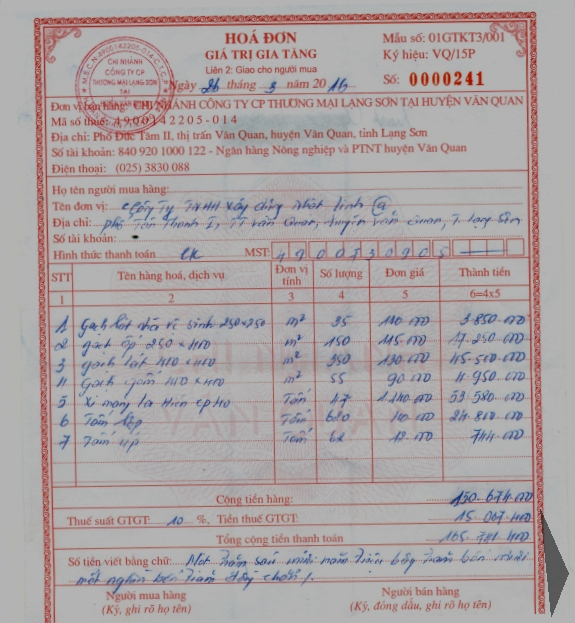 HOÁ ĐƠN
GIÁ TRỊ GIA TĂNG
Liên 2: Giao cho người mua
Ngày 26 tháng 3 năm 2016
Mẫu số: 01GTKT3/001
Ký hiệu: VQ/15P
Số: 0000241
M.S.C.N:4900142205-014-C.T.C.P
CHI NHÁNH
CÔNG TY CP
THƯƠNG MẠI LẠNG SƠN
TẠI
Đơn vị bán hàng: CHI NHÁNH CÔNG TY CP THƯƠNG MẠI LẠNG SƠN TẠI HUYỆN VĂN QUAN
Mã số thuế: 4900142205-014
Địa chỉ: Phố Đức Tâm II, thị trấn Văn Quan, huyện Văn Quan, tỉnh Lạng Sơn
Số tài khoản: 840 920 1000 122 - Ngân hàng Nông nghiệp và PTNT huyện Văn Quan
Điện thoại: (025) 3830 088
Họ tên người mua hàng:
Tên đơn vị: Công Ty TNHH xây dựng Nhật Linh
Địa chỉ: phố Tân Thanh I, TT Văn Quan, huyện Văn Quan, T. Lạng Sơn
Số tài khoản:
Hình thức thanh toán CK MST: 4900730905
STT Tên hàng hoá, dịch vụ Đơn vị tính Số lượng Đơn giá Thành tiền
1 2 3 4 5 6=4x5
1 Gạch lát nhà vệ sinh 250x250 m² 35 110 000 3.850.000
2 gạch ốp 250x400 m² 150 115 000 17.250 000
3 gạch lát 400x400 m² 350 130 000 45 500 000
4 Gạch gốm 400x400 m² 55 90 000 4 950 000
5 Xi măng Tấm 47 1.140 000 53 580 000
6 Tấm lợp Tấm 620 40 000 24 800 000
7 Tấm úp Tấm 62 12 000 744 000
Cộng tiền hàng: 150 674 000
Thuế suất GTGT: 10 %, Tiền thuế GTGT: 15 067 400
Tổng cộng tiền thanh toán 165 741 400
Số tiền viết bằng chữ: Một trăm sáu mươi năm triệu bảy trăm bốn mươi
một nghìn bốn trăm đồng chẵn /.
Người mua hàng Người bán hàng
(Ký, ghi rõ họ tên) (Ký, đóng dấu, ghi rõ họ tên)